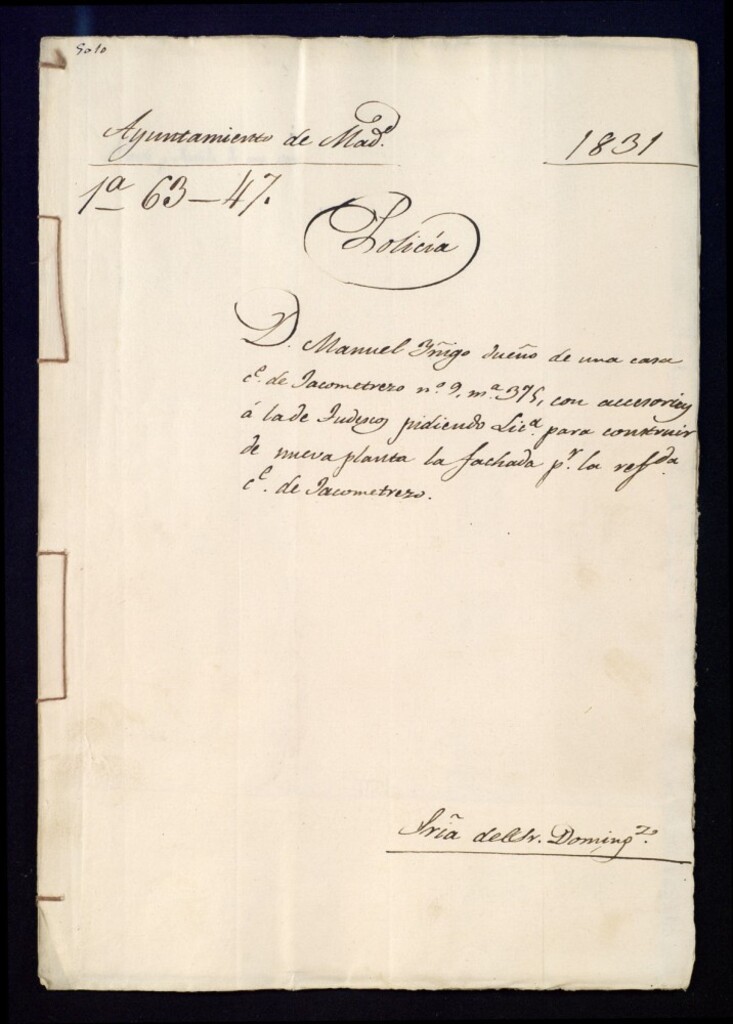 Solo
Ayuntamiento de Mad.d
1831
1ª 63-47.
Policía
D. Manuel Yñigo dueño de una casa
c.e de Jacometrezo n.º 9, m.a 375, con accesorias
á la de Tudescos pidiendo Lic.a para construir
de nueva planta la fachada p.r la ref.da
c.e de Jacometrezo.
Sría del Sr. Doming.z